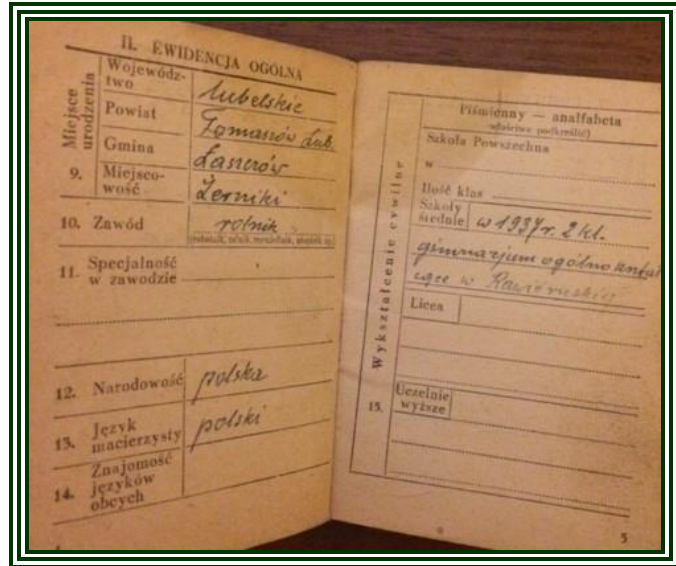 II. EWIDENCJA OGÓLNA
Miejsce urodzenia
9.
Województwo lubelskie
Powiat Tomaszów Lub.
Gmina Łaszczów
Miejscowość Żerniki
10. Zawód rolnik
11. Specjalność
w zawodzie
12. Narodowość polska
13. Język
macierzysty polski
14. Znajomość
języków
obcych
Wykształcenie cywilne
15.
Piśmienny — analfabeta
(właściwe podkreślić)
Szkoła Powszechna
w
Ilość klas
Szkoły
średnie w 1937 r. 2 kl.
gimnazjum ogólno kształ
cące w Rawie ruskiej
Licea
Uczelnie
wyższe
5